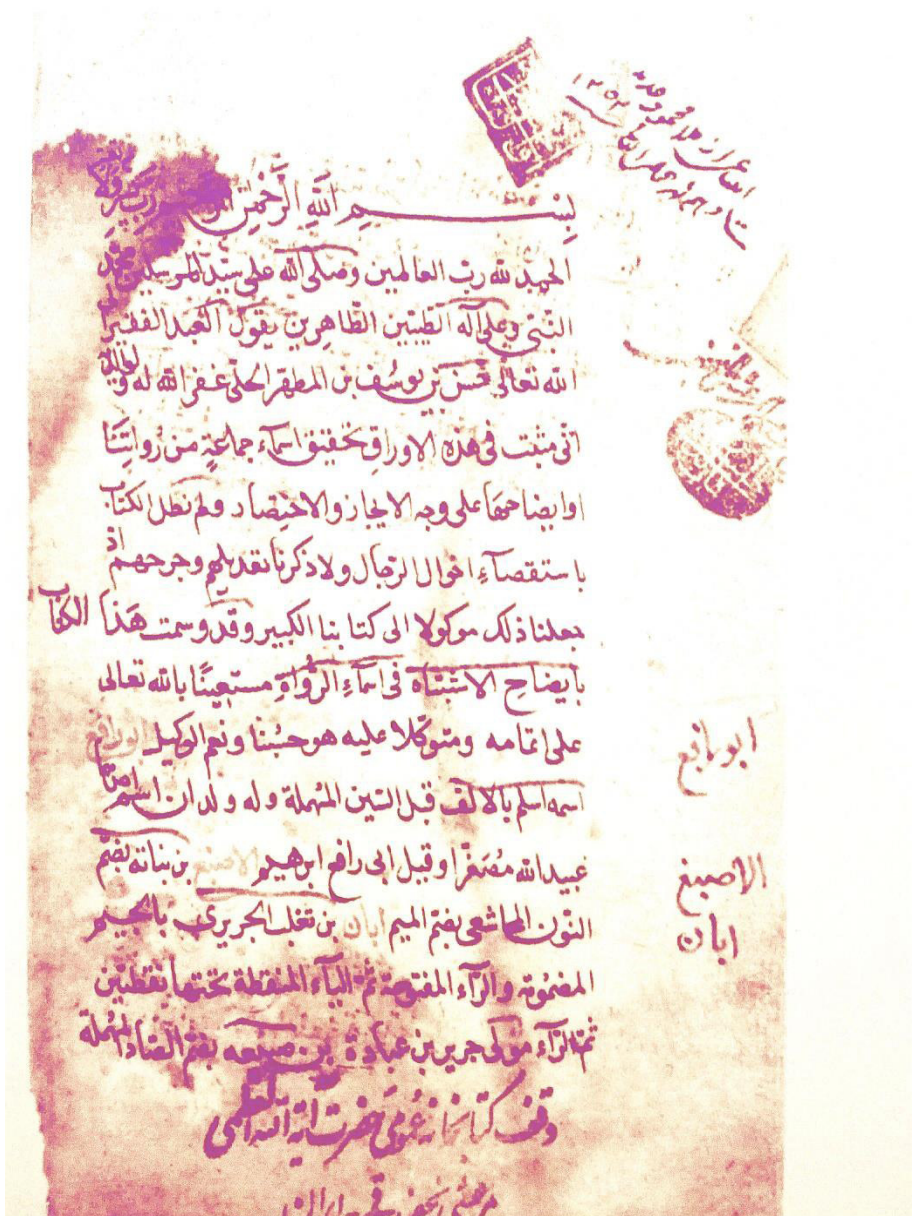 بِسْمِ اللَّهِ الرَّحْمٰنِ
الحمد لله رب العالمين وصلى الله على سيد المرسلين محمد
النبي وعلى آله الطيبين الطاهرين يقول العبد الفقير
الله تعالى حسن بن يوسف بن المطهر الحلي غفر الله له ولوالديه
انى مثبت فى هذه الاوراق تحقيق اسماء جماعة من رواتنا
وايضاحها على وجه الايجاز والاختصار ولم نطل الكتاب
باستقصاء احوال الرجال ولا ذكرنا تعديلهم وجرحهم اذ
جعلنا ذلك موكولا الى كتابنا الكبير وقد وسمت هذا الكتاب
بايضاح الاشتباه فى اسماء الرواة مستعينًا بالله تعالى
على اتمامه ومتوكلا عليه هو حسبنا ونعم الوكيل ابورافع
اسمه اسلم بالالف قبل السين المهملة وله ولدان اسم
عبيدالله مصغرا وقيل ابى رافع ابرهيم الاصبغ بن نباته بضم
النون المجاشعى بضم الميم ابان بن تغلب الجريرى بالجيم
المضمومة والراء المفتوحة ثم الياء المنقطة تحتها نقطتين
ثم الراء مولى جرير بن عبادة بن ضبيعه بضم الضاد المهملة
ابورافع
الاصبغ
ابان
وقف كتابخانه عمومى حضرت آية الله العظمى
مرعشى نجفى قم ايران
۱۲۵۲